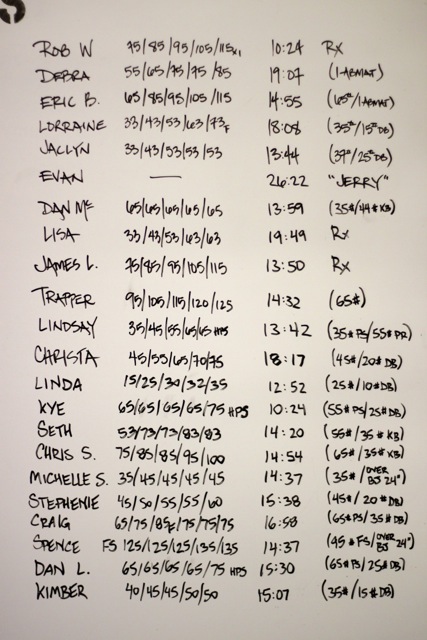 ROB W 75/85/95/105/115x1 10:24 Rx
DEBRA 55/65/75/75/85 19:07 (1-ABMAT)
ERIC B. 65/85/95/105/115 14:55 (65#/1ABMAT)
LORRAINE 33/43/53/63/73F 18:08 (35#/15# DB)
JACLYN 33/43/53/53/53 13:44 (37#/25# DB)
EVAN — 26:22 "JERRY"
DAN Mc 65/65/65/65/65 13:59 (35#/44# KB)
LISA 33/43/53/63/63 19:49 Rx
JAMES L. 75/85/95/105/115 13:50 Rx
TRAPPER 95/105/115/120/125 14:32 (65#)
LINDSAY 35/45/55/65/65 HPS 13:42 (35# PS/55# PR)
CHRISTA 45/55/65/70/75 18:17 (45#/20# DB)
LINDA 15/25/30/32/35 12:52 (25#/10# DB)
KYE 65/65/65/65/75 HPS 10:24 (55# PS/25# DB)
SETH 53/73/73/83/83 14:20 (55#/35# KB)
CHRIS S. 75/85/85/95/100 14:54 (65#/35# KB)
MICHELLE S. 35/45/45/45/45 14:37 (35#/OVER BJ 24")
STEPHENIE 45/50/55/55/60 15:38 (45#/20# DB)
CRAIG 65/75/85F/75/75/75 16:58 (65# PS/35# DB)
SPENCE FS 125/125/125/135/135 14:37 (95# FS/OVER BJ 24")
DAN L. 65/65/65/65/75 HPS 15:30 (65# PS/25# DB)
KIMBER 40/45/45/50/50 15:07 (35#/15# DB)